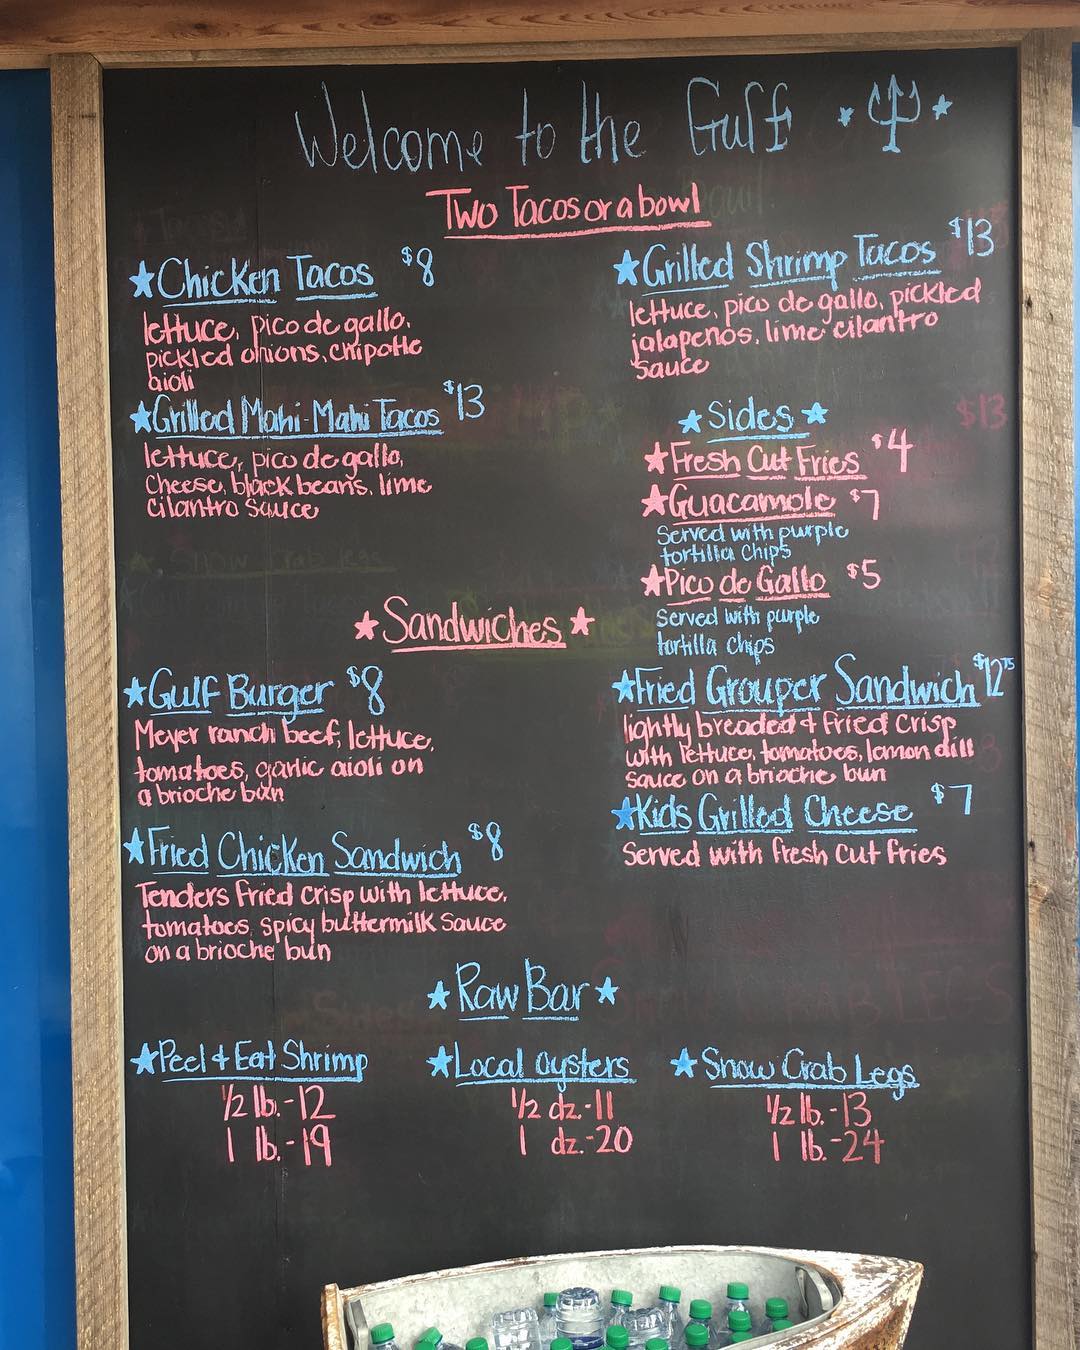 Welcome to the Gulf
Two Tacos or a bowl
Chicken Tacos $8
lettuce, pico de gallo,
pickled onions, chipotle
aioli
Grilled Mahi-Mahi Tacos $13
lettuce, pico de gallo,
cheese, black beans, lime
cilantro sauce
Grilled Shrimp Tacos $13
lettuce, pico de gallo, pickled
jalapenos, lime cilantro
sauce
Sides
Fresh Cut Fries $4
Guacamole $7
Served with purple
tortilla chips
Pico de Gallo $5
Served with purple
tortilla chips
Sandwiches
Gulf Burger $8
Meyer ranch beef, lettuce,
tomatoes, garlic aioli on
a brioche bun
Fried Chicken Sandwich $8
Tenders fried crisp with lettuce,
tomatoes, spicy buttermilk sauce
on a brioche bun
Fried Grouper Sandwich $12 75
lightly breaded & fried crisp
with lettuce, tomatoes, lemon dill
sauce on a brioche bun
Kids Grilled Cheese $7
Served with fresh cut fries
Raw Bar
Peel & Eat Shrimp
1/2 lb.-12
1 lb.-19
Local oysters
1/2 dz.-11
1 dz.-20
Snow Crab Legs
1/2 lb.-13
1 lb.-24